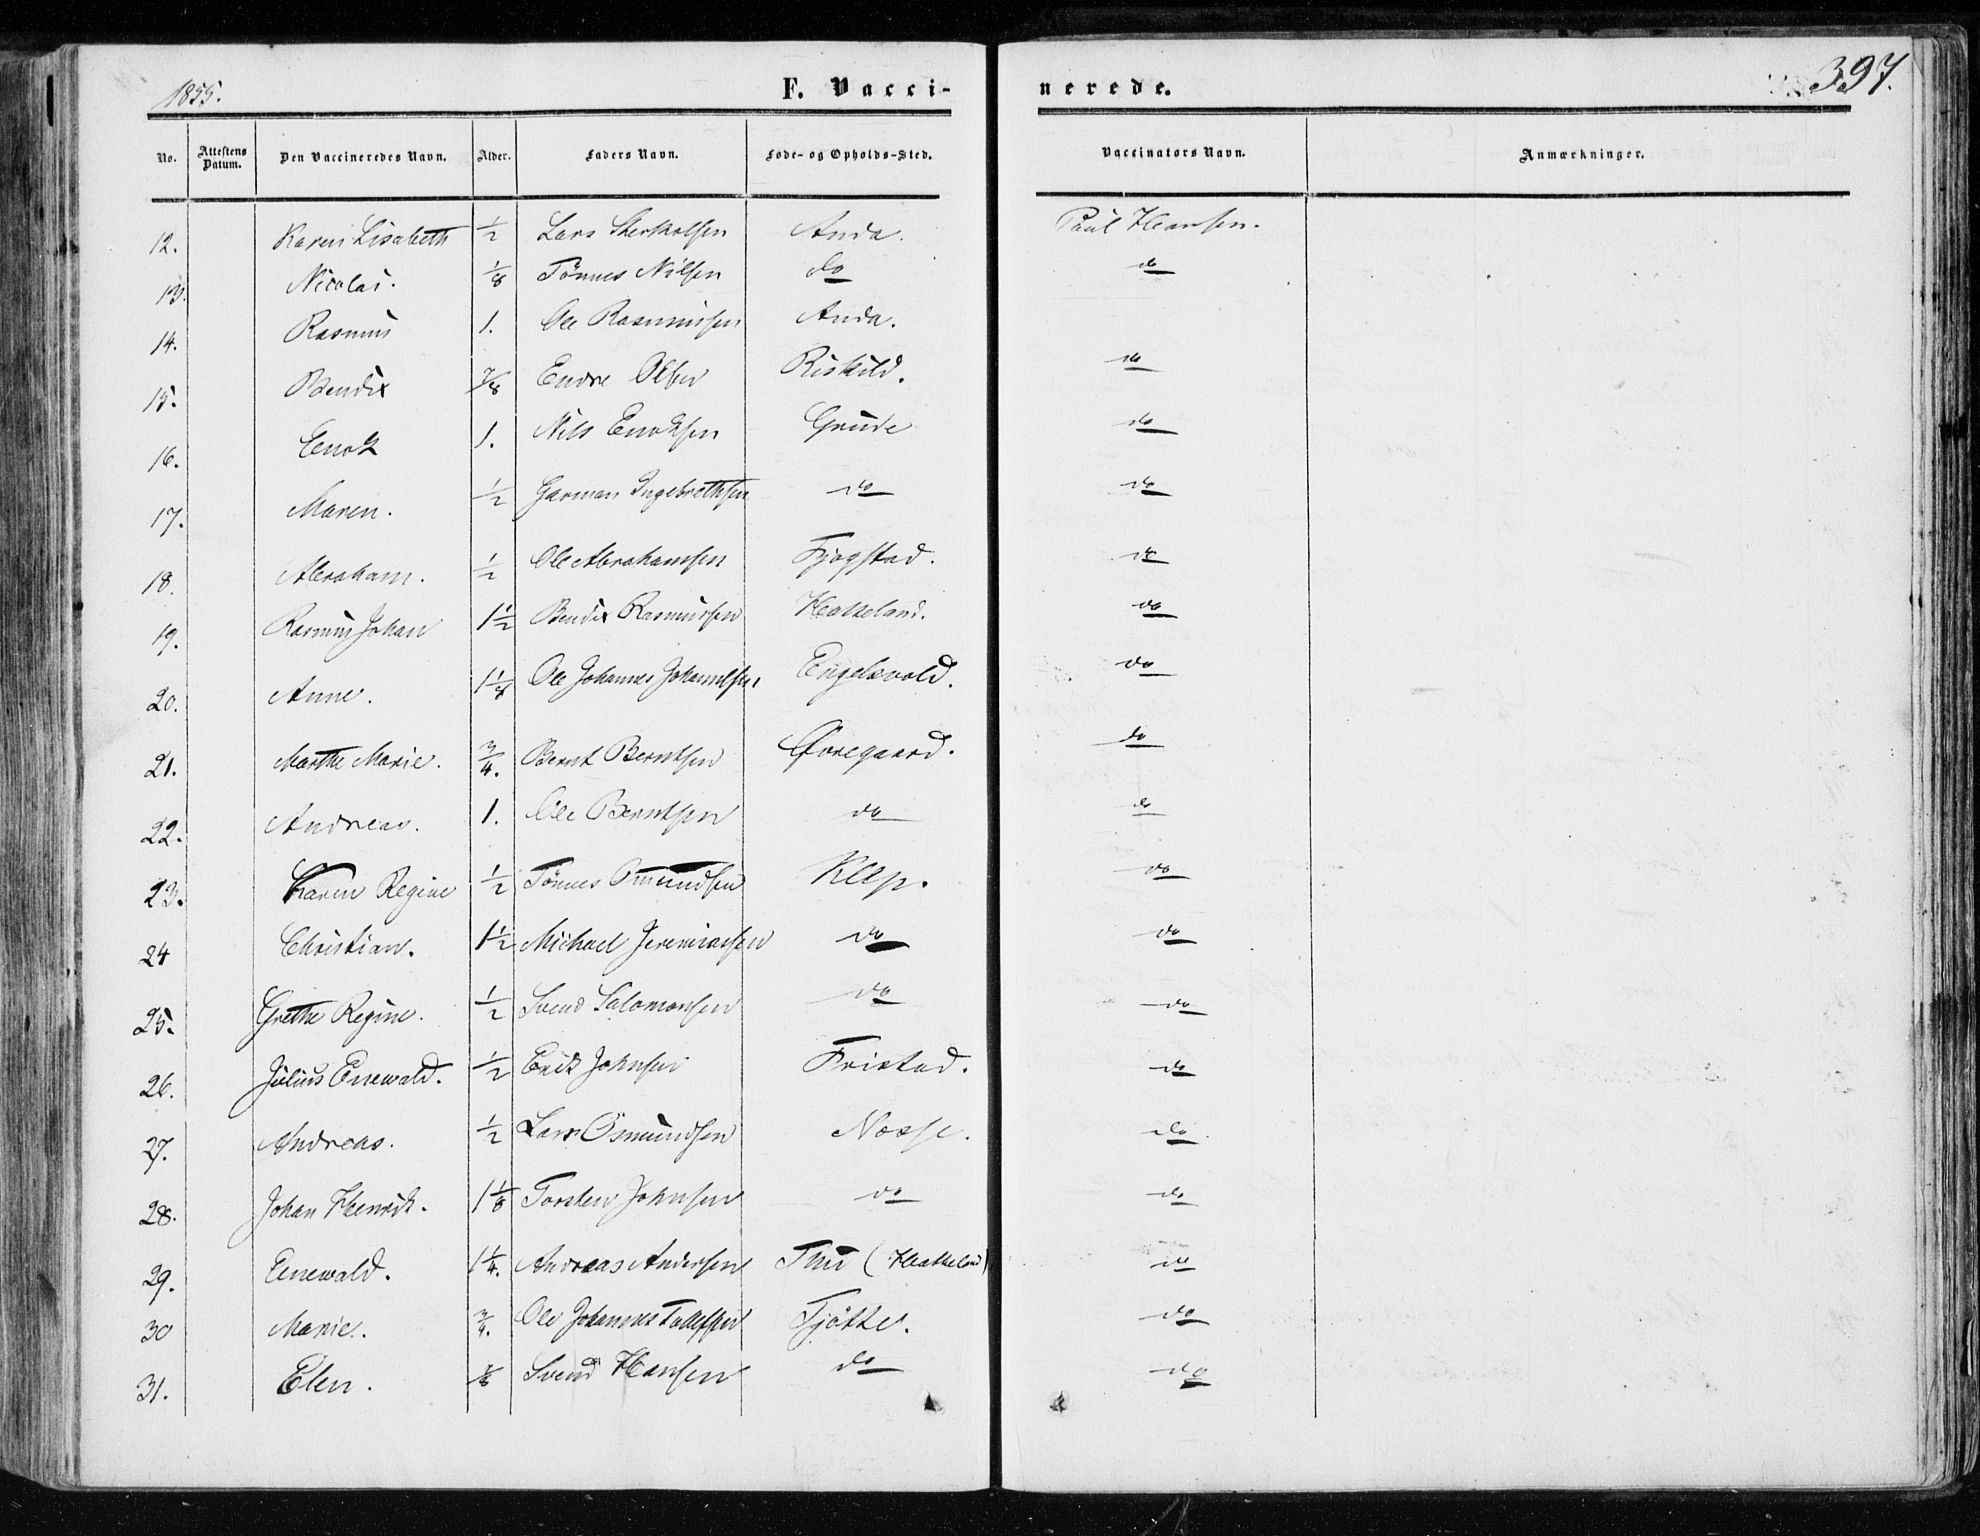 1855. F. Vacci- nerede. 397.
No. Attestens Datum. Den Vaccineredes Navn. Alder. Faders Navn. Føde- og Opholds-Sted. Vaccinators Navn. Anmærkninger.
12. Karen Lisabeth 1/2 Lars Anda. Paul Hansen.
13. Nicolai. 1/8 Tönnes Nilsen do do
14. Rasmus 1. Ole Rasmussen Anda.
15. Bendix 7/8 Endre Olsen Riskild. do
16. Enok 1. Nils Enoksen Grude do
17. Maren. 1/2 Garman Ingebrethsen do do
18. Abraham. 1/2 Ole Abrahamsen Fjogstad. do
19. Rasmus Johan 1 1/2 Bendix Rasmussen Hatteland. do
20. Anne. 1 1/8 Ole Johannes Johannesen Engelsvold. do
21. Marthe Marie. 3/4. Bernt Berntsen Øvregaard. do
22. Andreas. 1. Ole Berntsen do do
23. Karen Regine 1/2 Tönnes Omundsen Klep. do
24 Christian. 1 1/2 Michael Jeremiasen do do
25. Grethe Regine. 1/2 Svend Salomonsen do do
26. Julius Enewald. 1/2 Erik Johnsen Fristad. do
27. Andreas. 1/2 Lars Osmundsen Næsse. do
28. Johan Henrik. 1 1/8 Torsten Johnsen do do
29. Enewald. 1 1/4. Andreas Andersen Thu (Hatteland) do
30 Marie. 3/4. Ole Johannes Tollefsen Tjötte. do
31. Elen. Svend Hansen do do